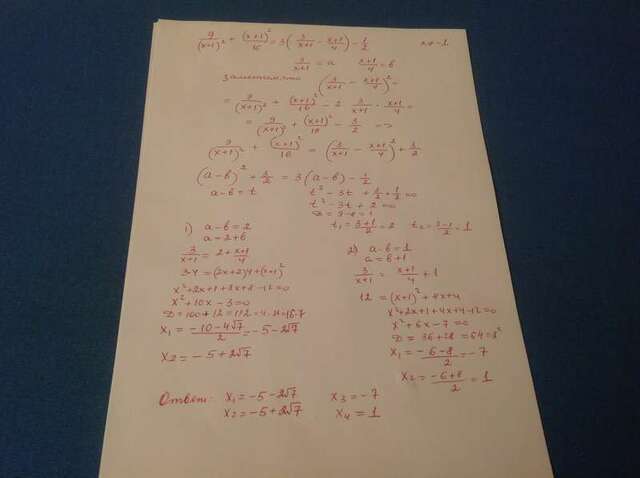 9/(x+1)² + (x+1)²/16 = 3(3/(x+1) − (x+1)/4) − 1/2     x ≠ −1
3/(x+1) = a     (x+1)/4 = b
Заметим, что (3/(x+1) − (x+1)/4)² =
= 9/(x+1)² + (x+1)²/16 − 2 · 3/(x+1) · (x+1)/4 =
= 9/(x+1)² + (x+1)²/16 − 3/2 =>
9/(x+1)² + (x+1)²/16 = (3/(x+1) − (x+1)/4)² + 3/2
(a−b)² + 3/2 = 3(a−b) − 1/2
a−b = t     t² − 3t + 3/2 + 1/2 = 0
t² − 3t + 2 = 0
D = 9−8 = 1
t₁ = (3+1)/2 = 2     t₂ = (3−1)/2 = 1
1) a−b = 2
a = 2+b
3/(x+1) = 2 + (x+1)/4
3·4 = (2x+2)4 + (x+1)²
x² + 2x + 1 + 8x + 8 − 12 = 0
x² + 10x − 3 = 0
D = 100 + 12 = 112 = 4·28 = 16·7
x₁ = (−10 − 4√7)/2 = −5 − 2√7
x₂ = −5 + 2√7
2) a−b = 1
a = b+1
3/(x+1) = (x+1)/4 + 1
12 = (x+1)² + 4x+4
x² + 2x + 1 + 4x + 4 − 12 = 0
x² + 6x − 7 = 0
D = 36 + 28 = 64 = 8²
x₁ = (−6−8)/2 = −7
x₂ = (−6+8)/2 = 1
Ответ: x₁ = −5 − 2√7     x₃ = −7
x₂ = −5 + 2√7     x₄ = 1